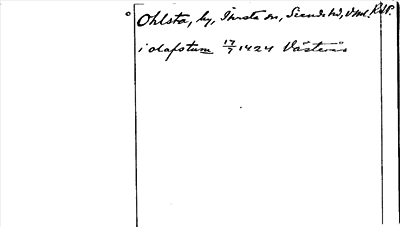 ° Ohlsta, by, Irsta sn, Siende hd, Vml. RAP.
i olafstum 17/7 1424 Västerås